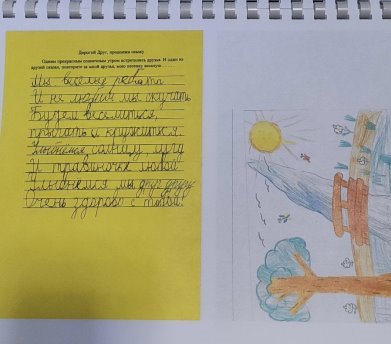 Дорогой Друг, продолжи сказку.
Однажды прекрасным солнечным утром встретились друзья. И один из
друзей сказал, повторите за мной друзья, мою песенку веселую…
Мы весёлые ребята
И не любим мы скучать
Будем веселиться,
прыгать и кружиться.
Улыбнёмся солнцу лугу
И травиночке любой
Улыбнёмся мы друг другу
Очень здорово с тобой!